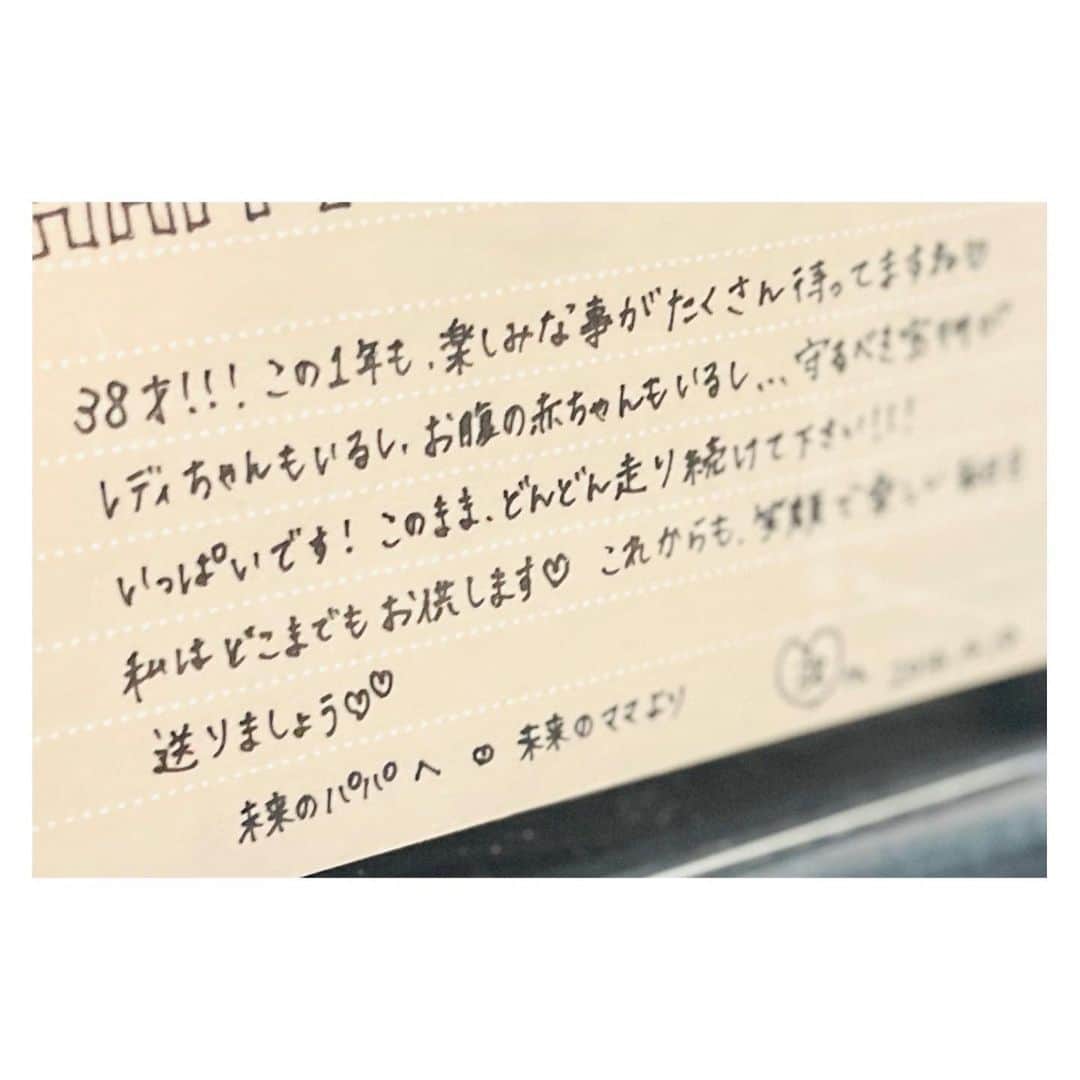 38才!!! この1年も、楽しみな事がたくさん待ってますね♡
レディちゃんもいるし、お腹の赤ちゃんもいるし...守るべき宝物が
いっぱいです! このまま、どんどん走り続けて下さい!!!
私はどこまでもお供します♡ これからも、笑顔で楽しい毎日を
送りましょう♡♡
未来のパパへ ♡ 未来のママより